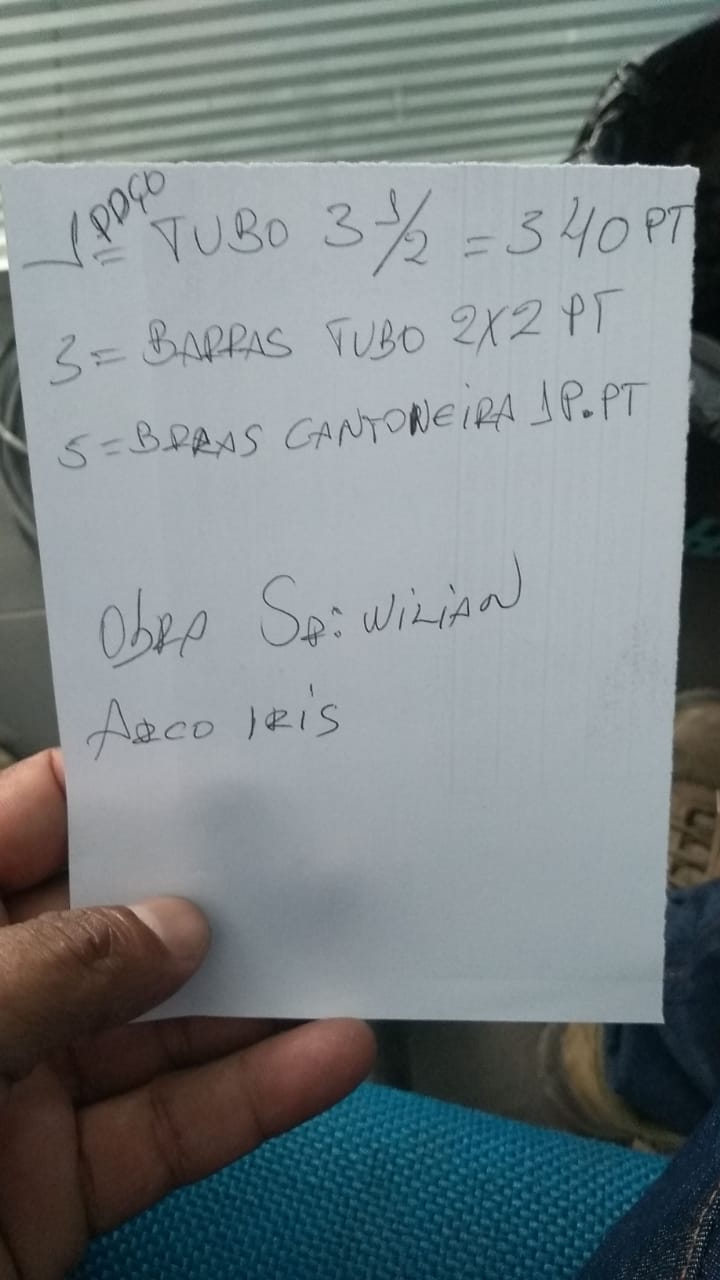 1 PDÇO = TUBO 3 1/2 = 340 PT
3 = BARRAS TUBO 2X2 PT
5 = BRRAS CANTONEIRA 1P.PT
Obra Sr: WILIAN
Arco IRIS